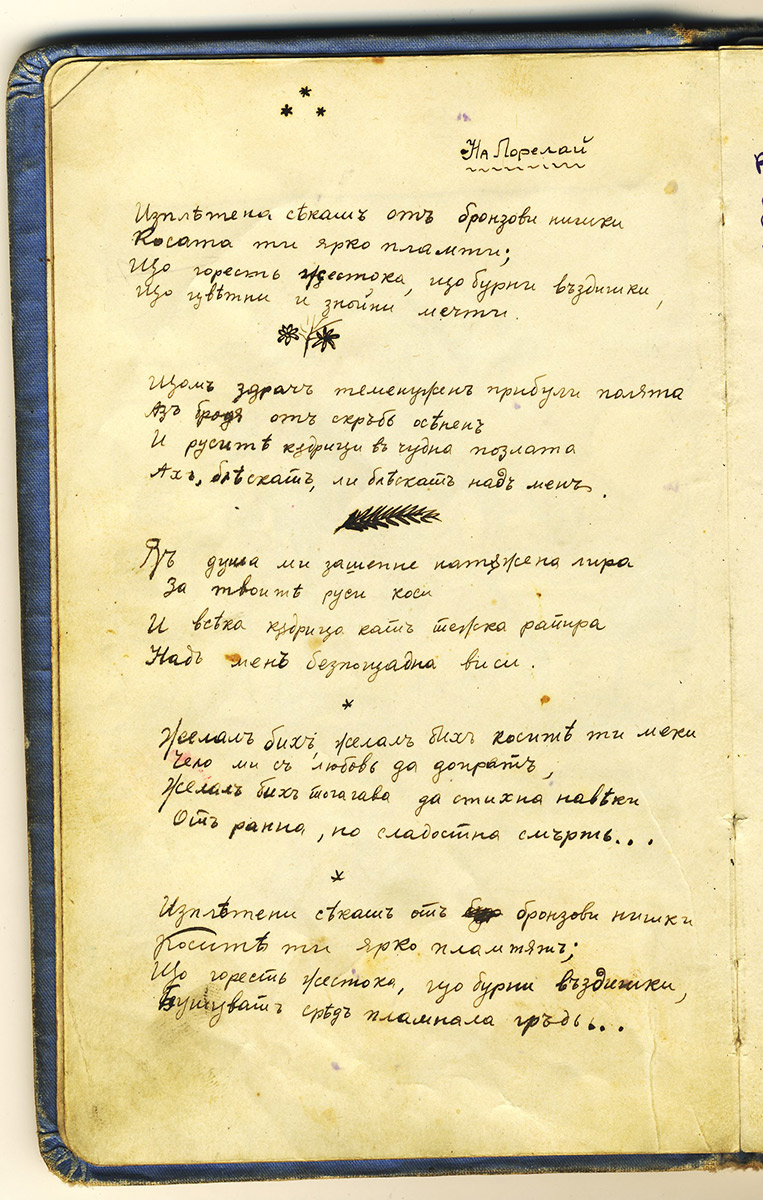 На Лорелай
Изплѣтена сѣкашъ отъ бронзови нишки
Косата ти ярко пламти;
Що горесть жестока, що бурни въздишки,
Що цвѣтни и знойни мечти.
Щомъ здрачъ теменуженъ прибули полята
Азъ бродя отъ скръбь осѣненъ
И руситѣ къдрици въ чудна позлата
Ахъ, блѣскатъ, ли блѣскатъ надъ менъ.
душа ми зашепне натѫжена лира
За твоитѣ руси коси
И всѣка къдрица катъ тежка рапира
Надъ менъ безпощадна виси.
Желалъ бихъ, желалъ бихъ коситѣ ти меки
Чело ми съ любовь да допратъ,
Желалъ бихъ тогагава да стихна навѣки
Отъ ранна, но сладостна смърть...
Изплѣтени сѣкашъ отъ бронзови нишки
Коситѣ ти ярко пламтятъ;
Що горесть жестока, що бурни въздишки,
Бушуватъ срѣдъ пламнала гръдь...